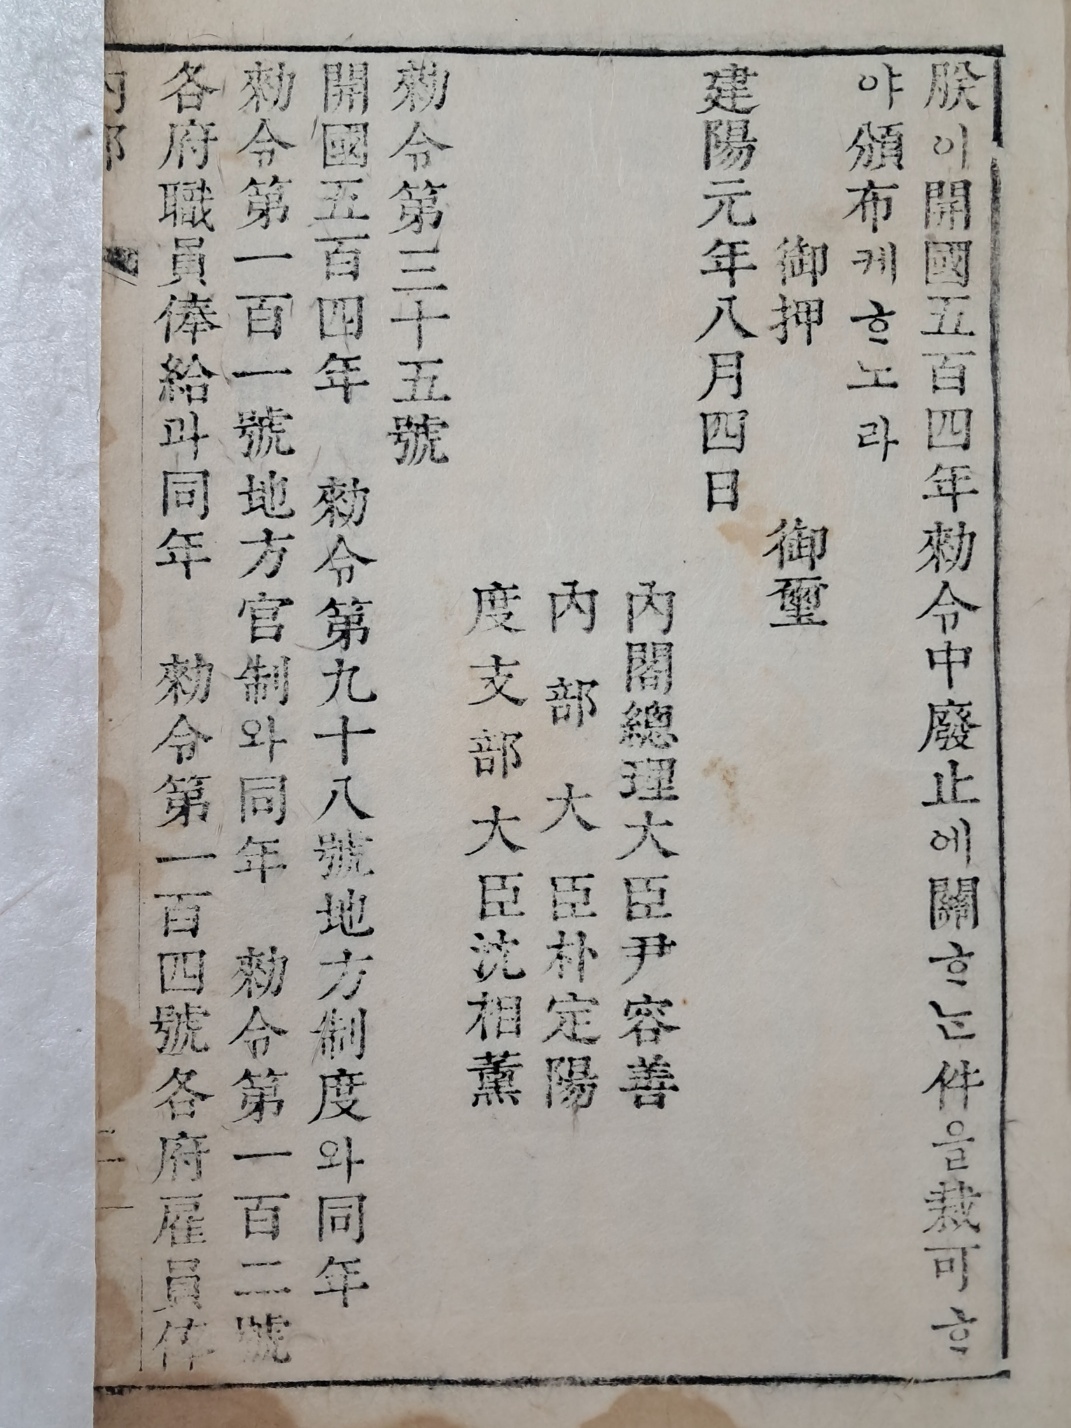 朕이開國五百四年勅令中廢止에關ᄒᆞᄂᆞᆫ件을裁可ᄒᆞ
야頒布케ᄒᆞ노라
御押 御璽
建陽元年八月四日
內閣總理大臣尹容善
內部大臣朴定陽
度支部大臣沈相薰
勅令第三十五號
開國五百四年 勅令第九十八號地方制度와同年
勅令第一百一號地方官制와同年 勅令第一百二號
各府職員俸給과同年 勅令第一百四號各府雇員俸
內部